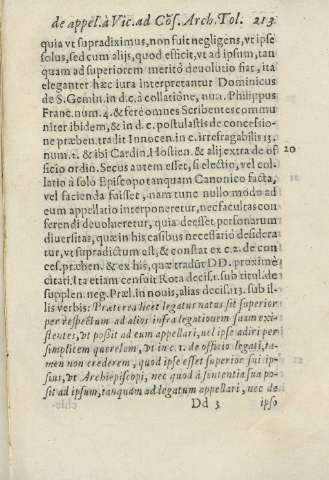 de appel. à Vic. ad Cõs. Arch. Tol. 213.
quia vt supradiximus, non fuit negligens, vt ipse
solus, sed cum alijs, quod efficit, vt ad ipsum, tan
quam ad superiorem meritò deuolutio fiat, ita
eleganter hæc iura interpretantur Dominicus
de S. Gemin. in d. c. à collatione, nu. 1. Philippus
Franc. num. 4. & ferè omnes Scribentes commu
niter ibidem, & in d. c. postulastis de concessio-
ne præben. tradit Innocen. in c. irrefragabilis 13.
num. 1. & ibi Cardin. Hostien. & alij extra de of 20
ficio ordin. Secus autem esset, si electio, vel col-
latio à solo Episcopo tanquam Canonico facta,
vel facienda fuisset, nam tunc nullo modo ad
eum appellatio interponeretur, nec facultas con
ferendi deuolueretur, quia deesset personarum
diuersitas, quæ in his casibus necessariò desidera
tur, vt supradictum est, & constat ex c. 2. de con-
ces. præben. & ex his, quæ tradũt DD. proximè
citati. Ita etiam censuit Rota decis. 1. sub titul. de
supplen. neg. Præl. in nouis, aliàs decis. 13. sub il-
lis verbis: Præterea licet legatus natus sit superior
per respectum ad alios infra legationem suam exi-
stentes, vt possit ad eum appellari, vel ipse adiri per
simplicem querelam, vt in c. 1. de officio legati, ta-
men non crederem, quod ipse esset superior sui ip-
sius, vt Archiepiscopi, nec quod à sententia sua pos-
sit ad ipsum, tanquam ad legatum appellari, nec de
Dd 3 ipso